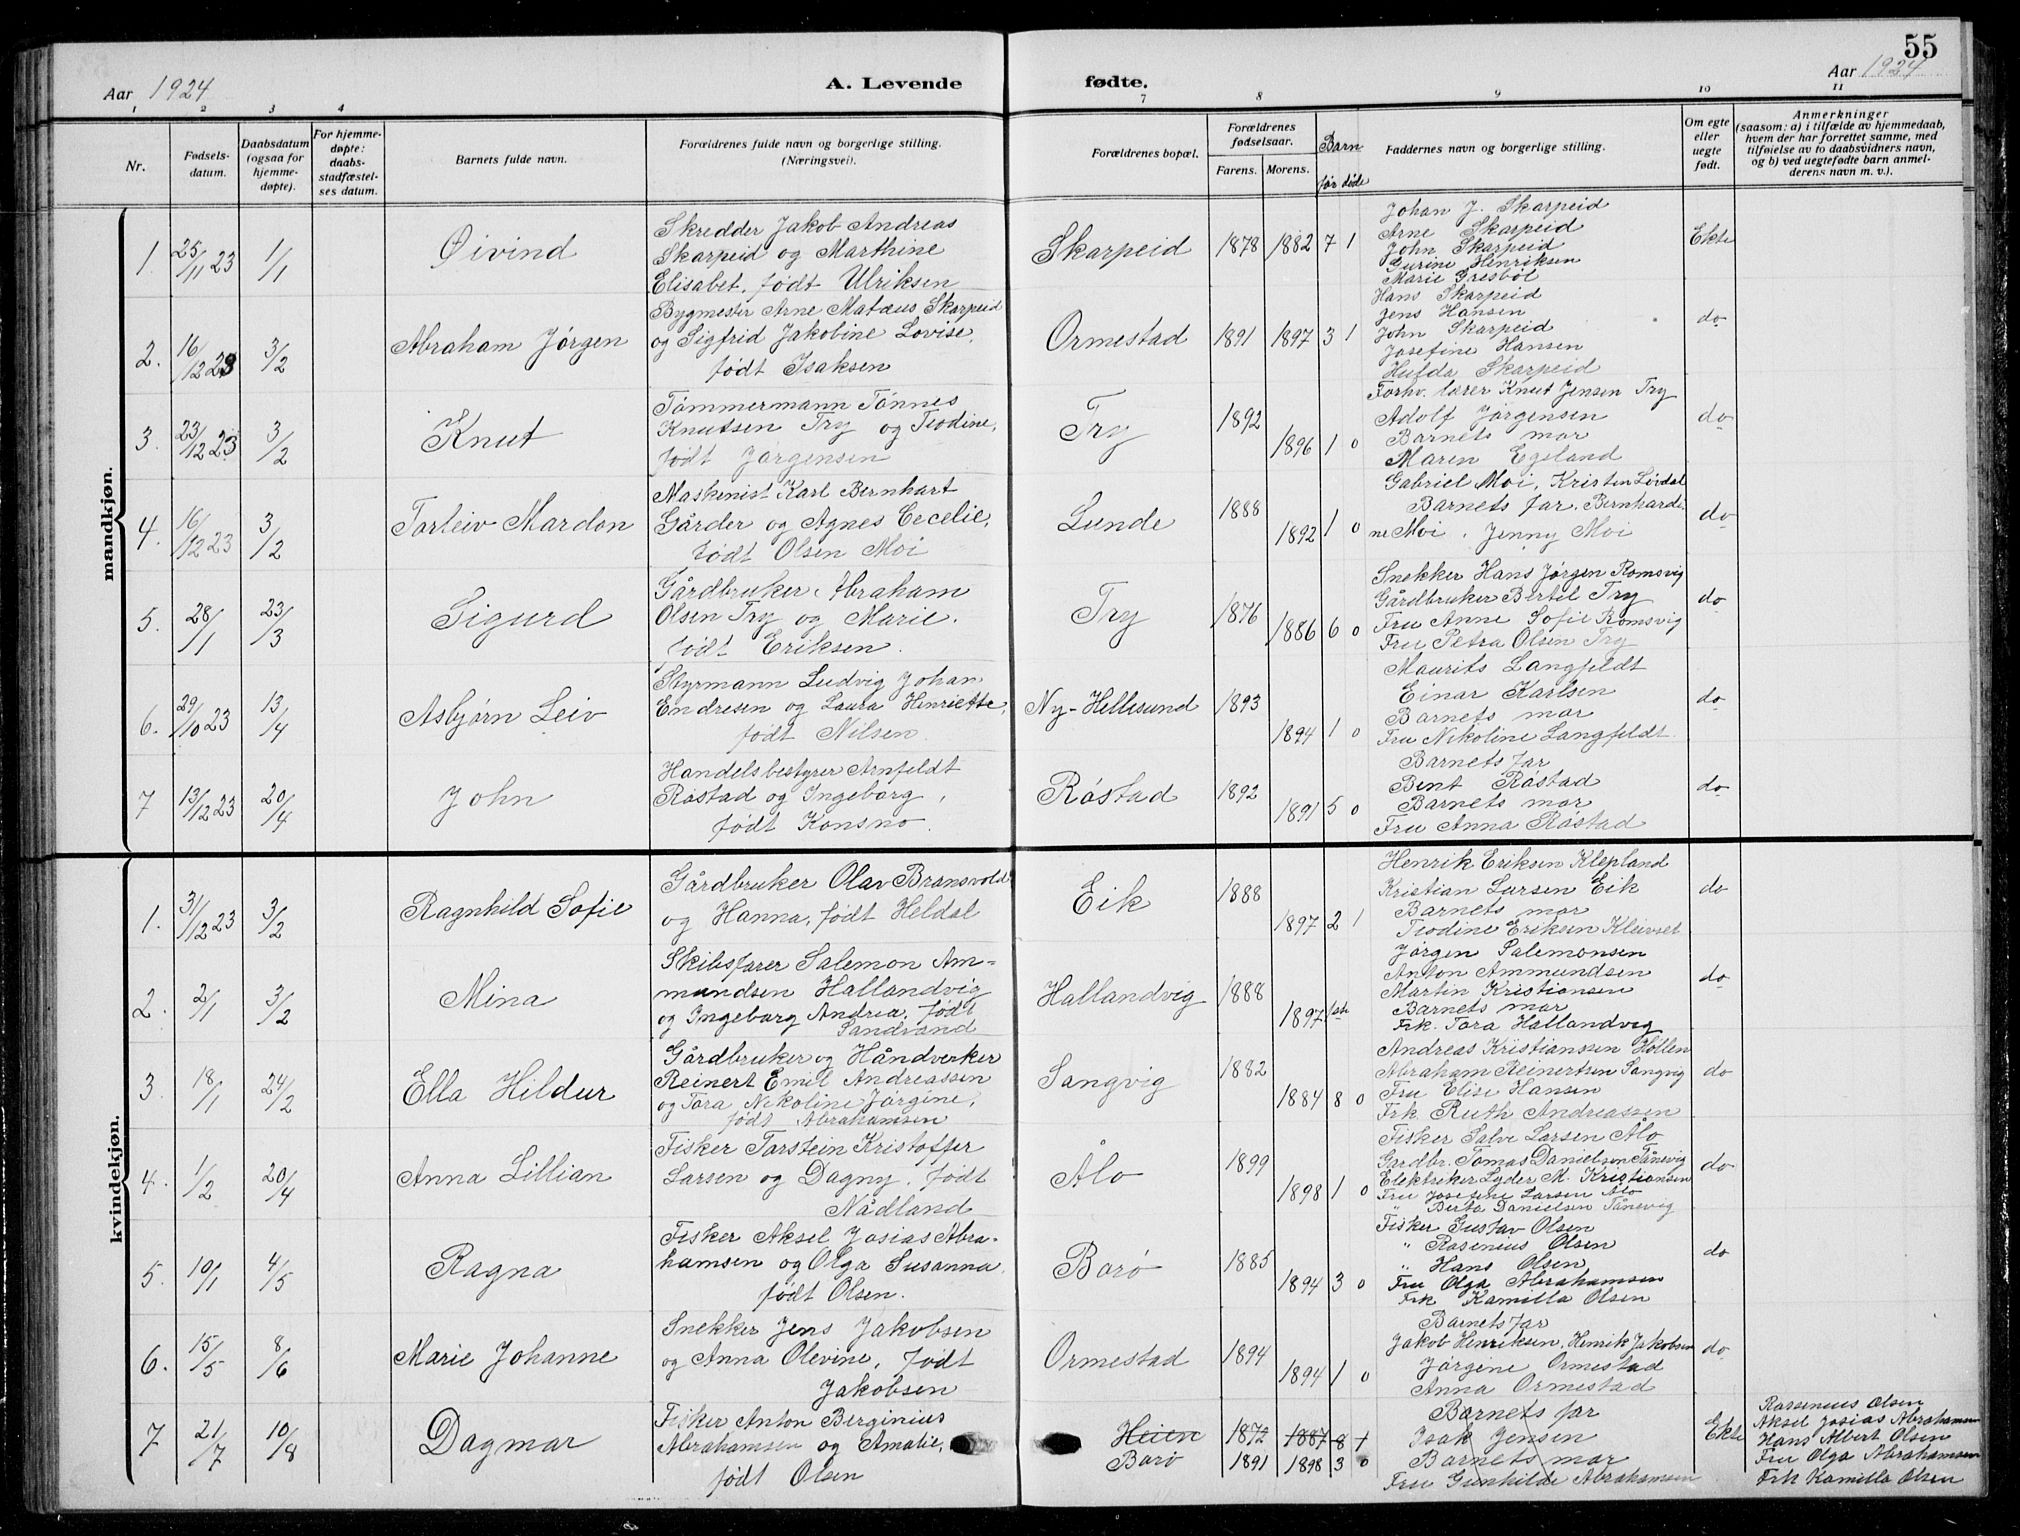 55
Aar 1924
A. Levende
fødte.
Aar 1924
1 2 3 4
7 8 9 10 11
Nr.
Fødsels-
datum.
Daabsdatum
(ogsaa for
hjemme-
døpte).
For hjemme-
døpte:
daabs-
stadfæstel-
ses datum.
Barnets fulde navn.
Forældrenes fulde navn og borgerlige stilling.
(Næringsvei).
Forældrenes bopæl.
Forældrenes
fødselsaar.
Farens. Morens.
Barn
før døde
Faddernes navn og borgerlige stilling.
Om egte
eller
uegte
født.
Anmerkninger
(saasom: a) i tilfælde av hjemmedaab,
hvem der har forrettet samme, med
tilføielse av to daabsvidners navn,
og b) ved uegtefødte barn anmel-
derens navn m. v.).
mandkjøn.
1. 25/11 23 1/1 Øivind
Skredder Jakob Andreas
Skarpeid og Marthine
Elisabet, født Ulriksen
Skarpeid 1878 1882 7 1
Johan J. Skarpeid
Arne Skarpeid
John Skarpeid
Gurine Henriksen
Marie Gresbøl
Ekte
2. 16/12 23 3/2 Abraham Jørgen
Bygmester Arne Matæus Skarpeid
og Sigfrid Jakobine Lovise,
født Isaksen
Ormestad 1891 1897 3 1
Hans Skarpeid
Jens Hansen
John Skarpeid
Josefine Hansen
Hulda Skarpeid
do
3. 23/12 23 3/2 Knut
Tømmermann Tønnes
Knutsen Try og Teodine,
født Jørgensen
Try 1892 1896 1 0
Forhv. lærer Knut Jensen Try
Adolf Jørgensen
Barnets mor
Maren Egeland
do
4. 16/12 23 3/2 Torleiv Mardon
Maskinist Karl Bernhart
Gårder og Agnes Cecelie,
født Olsen Moi
Lunde 1888 1892 1 0
Gabriel Moi, Kristen Lövdal
Barnets far. Bernhardi-
ne Moi, Jenny Moi
do
5. 28/1 23/3 Sigurd
Gårdbruker Abraham
Olsen Try og Marie,
født Eriksen.
Try 1876 1886 6 0
Snekker Hans Jørgen Romsvig
Gårdbruker Bertel Try
Fru Anne Sofie Romsvig
Fru Petra Olsen Try
do
6. 29/10 23 13/4 Asbjørn Leiv
Styrmann Ludvig Johan
Endresen og Laura Henriette,
født Nilsen.
Ny-Hellesund 1893 1894 1 0
Maurits Langfeldt
Einar Karlsen
Barnets mor
Fru Nikoline Langfeldt
do
7 13/12 23 20/4 John
Handelsbestyrer Arnfeldt
Røstad og Ingeborg,
født Konsmo.
Røstad 1892 1891 5 0
Barnets far
Bent Røstad
Barnets mor
Fru Anna Røstad
do
kvindekjøn.
1. 31/12 23 3/2 Ragnhild Sofie
Gårdbruker Olav Bransvold
og Hanna, født Heldal
Eik 1888 1897 2 1
Henrik Eriksen Klepland
Kristian Larsen Eik
Barnets mor
Teodine Eriksen Kleivset
do
2. 2/1 3/2 Mina
Skibsfører Salemon Am-
mundsen Hallandvig
og Ingeborg Andrea, født
Sandvand
Hallandvig 1888 1897
Jørgen Salemonsen
Anton Ammundsen
Martin Kristiansen
Barnets mor
Frk. Tora Hallandvig
do
3. 18/1 24/2 Ella Hildur
Gårdbruker og Håndverker
Reinert Emil Andreassen
og Tora Nikoline Jørgine,
født Abrahamsen
Sangvig 1882 1884 8 0
Andreas Kristianssen Høllen
Abraham Reinertsen Sangvig
Fru Elise Hansen
Frk. Ruth Andreassen
do
4. 1/2 20/4 Anna Lillian
Fisker Torstein Kristoffer
Larsen og Dagny, født
Nådland
Ålo 1899 1898 1 0
Fisker Salve Larsen Ålo
Gardbr. Tomas Danielsen Tånevig
Elektriker Lyder M. Kristiansen
Fru Josefine Larsen Ålo
" Berta Danielsen Tånevig
do
5. 10/1 4/5 Ragna
Fisker Aksel Josias Abra-
hamsen og Olga Susanna,
født Olsen.
Borø 1885 1894 3 0
Fisker Gustav Olsen
" Rasenius Olsen
" Hans Olsen
Fru Olga Abrahamsen
Frk Kamilla Olsen
do
6. 15/5 8/6 Marie Johanne
Snekker Jens Jakobsen
og Anna Olevine, født
Jakobsen
Ormestad 1894 1894 1 0
Barnets far
Jakob Henriksen, Henrik Jakobsen
Jørgine Ormestad
Anna Ormestad
do
7 21/7 10/8 Dagmar
Fisker Anton Berginius
Abrahamsen og Amalie,
født Olsen
Heien 1872 1887 8 1
Borø 1891 1898 3 0
Barnets far
Isak Jensen
Barnets mor
Fru Gunhilde Abrahamsen
Ekte
Rasenius Olsen
Aksel Josias Abrahamsen
Hans Albert Olsen
Fru Olga Abrahamsen
Frk Kamilla Olsen